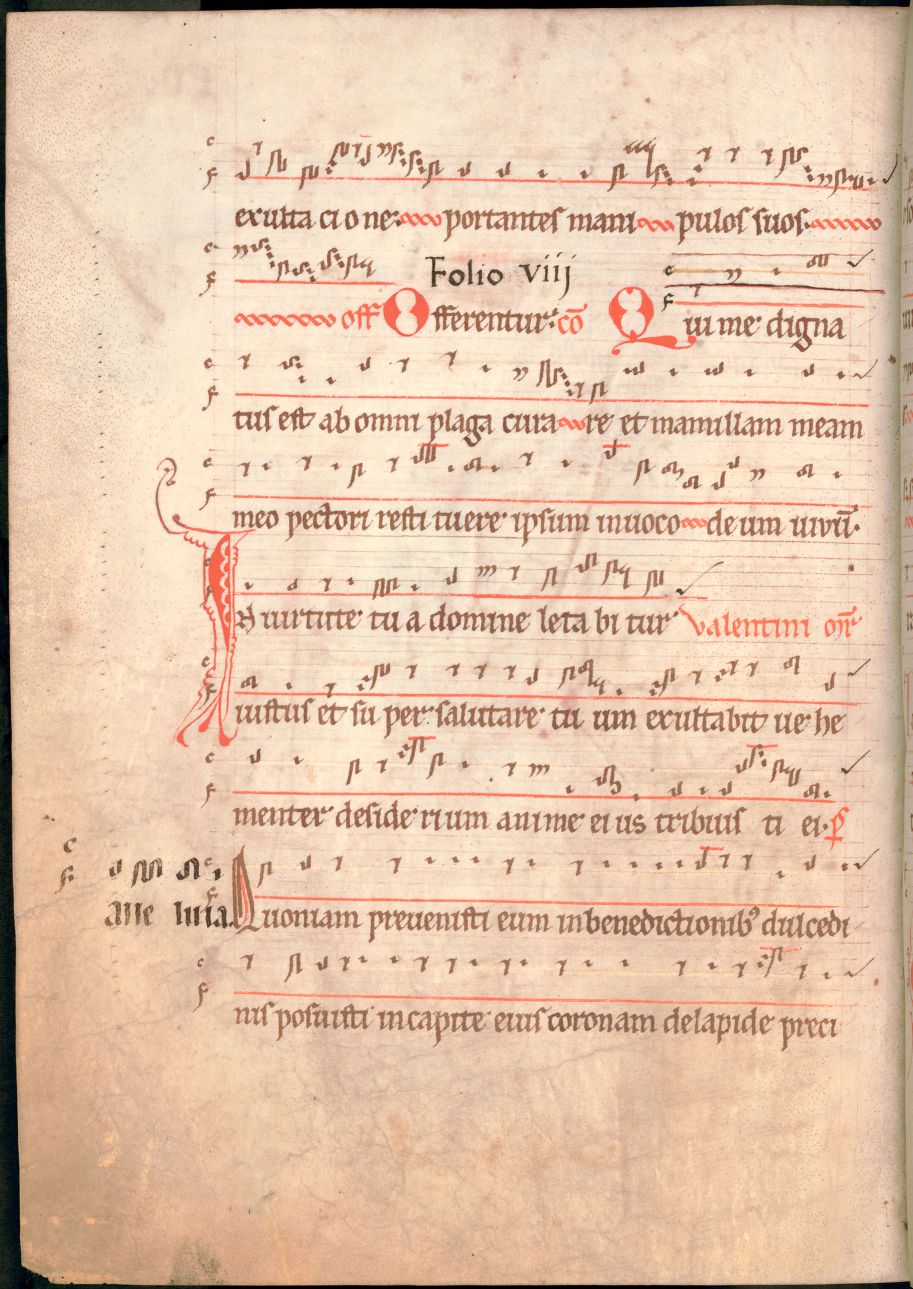 exulta ci o ne portantes mani pulos suos
Folio viij
off Offerentur. cō Qui me digna
tus est ab omni plaga cura re et mamillam meam
meo pectori resti tuere ipsum inuoco de um uiuū.
IN uirtute tu a domine leta bi tur Valentini mr̄
iustus et su per salutare tu um exultabit ue he
menter deside rium anime ei us tribuis ti ei.
Alle luia. Quoniam preuenisti eum in benedictionib9 dulcedi
nis posuisti in capite eius coronam de lapide preci